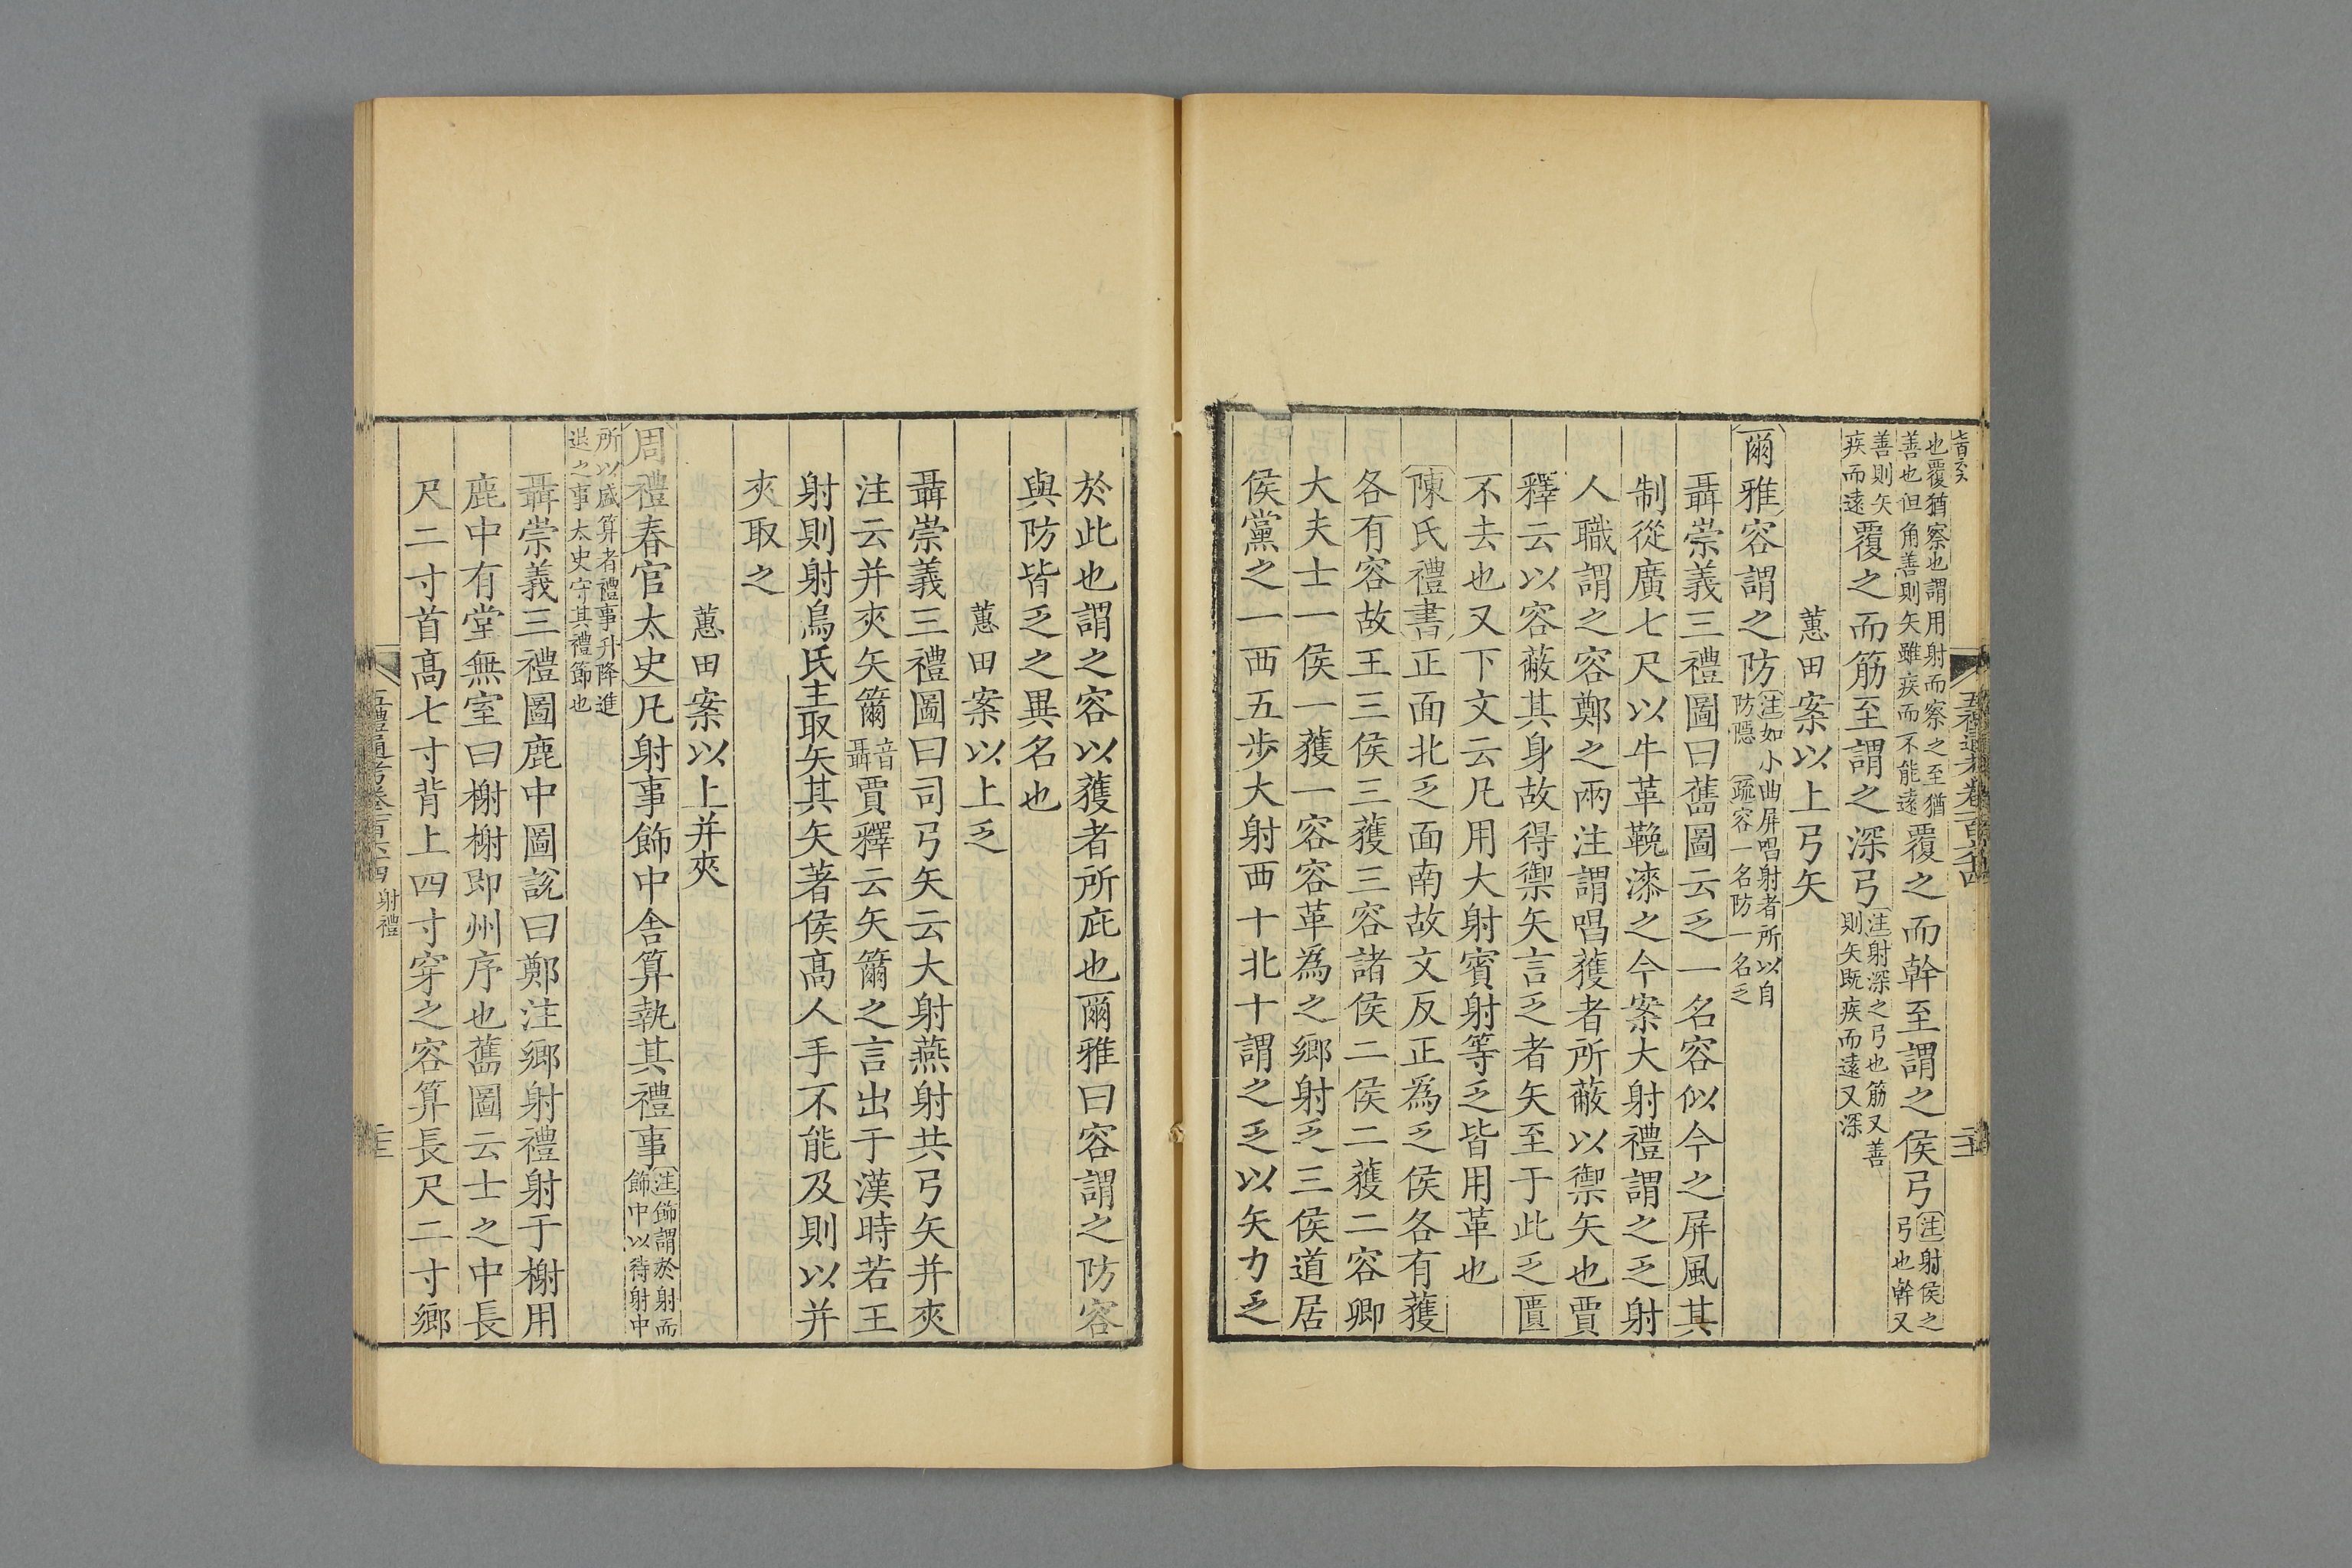 也覆猶察也謂用射而察之至猶
善也但角善則矢雖疾而不能遠
覆之而幹至謂之侯弓
注射侯之
弓也幹又
善則矢
疾而遠
覆之而筋至謂之深弓
注射深之弓也筋又善
則矢既疾而遠又深
蕙田案以上弓矢
爾雅容謂之防
注如小曲屏唱射者所以自
防隱 疏容一名防一名乏
聶崇義三禮圖曰舊圖云乏一名容似今之屏風其
制從廣七尺以牛革鞔漆之今案大射禮謂之乏射
人職謂之容鄭之兩注謂唱獲者所蔽以禦矢也賈
釋云以容蔽其身故得禦矢言乏者矢至于此乏匱
不去也又下文云凡用大射賓射等乏皆用革也
陳氏禮書正面北乏面南故文反正為乏侯各有獲
各有容故王三侯三獲三容諸侯二侯二獲二容卿
大夫士一侯一獲一容容革為之鄉射乏三侯道居
侯黨之一西五步大射西十北十謂之乏以矢力乏
於此也謂之容以獲者所庇也爾雅曰容謂之防容
與防皆乏之異名也
蕙田案以上乏
聶崇義三禮圖曰司弓矢云大射燕射共弓矢并夾
注云并夾矢籋
音
聶
賈釋云矢籋之言出于漢時若王
射則射鳥氏主取矢其矢著侯高人手不能及則以并
夾取之
蕙田案以上并夾
周禮春官太史凡射事飾中舍算執其禮事
注飾謂於射而
飾中以待射中
所以盛算者禮事升降進
退之事太史守其禮節也
聶崇義三禮圖鹿中圖說曰鄭注鄉射禮射于榭用
鹿中有堂無室曰榭榭即州序也舊圖云士之中長
尺二寸首高七寸背上四寸穿之容算長尺二寸鄉
五禮通考卷一百六十四 射禮